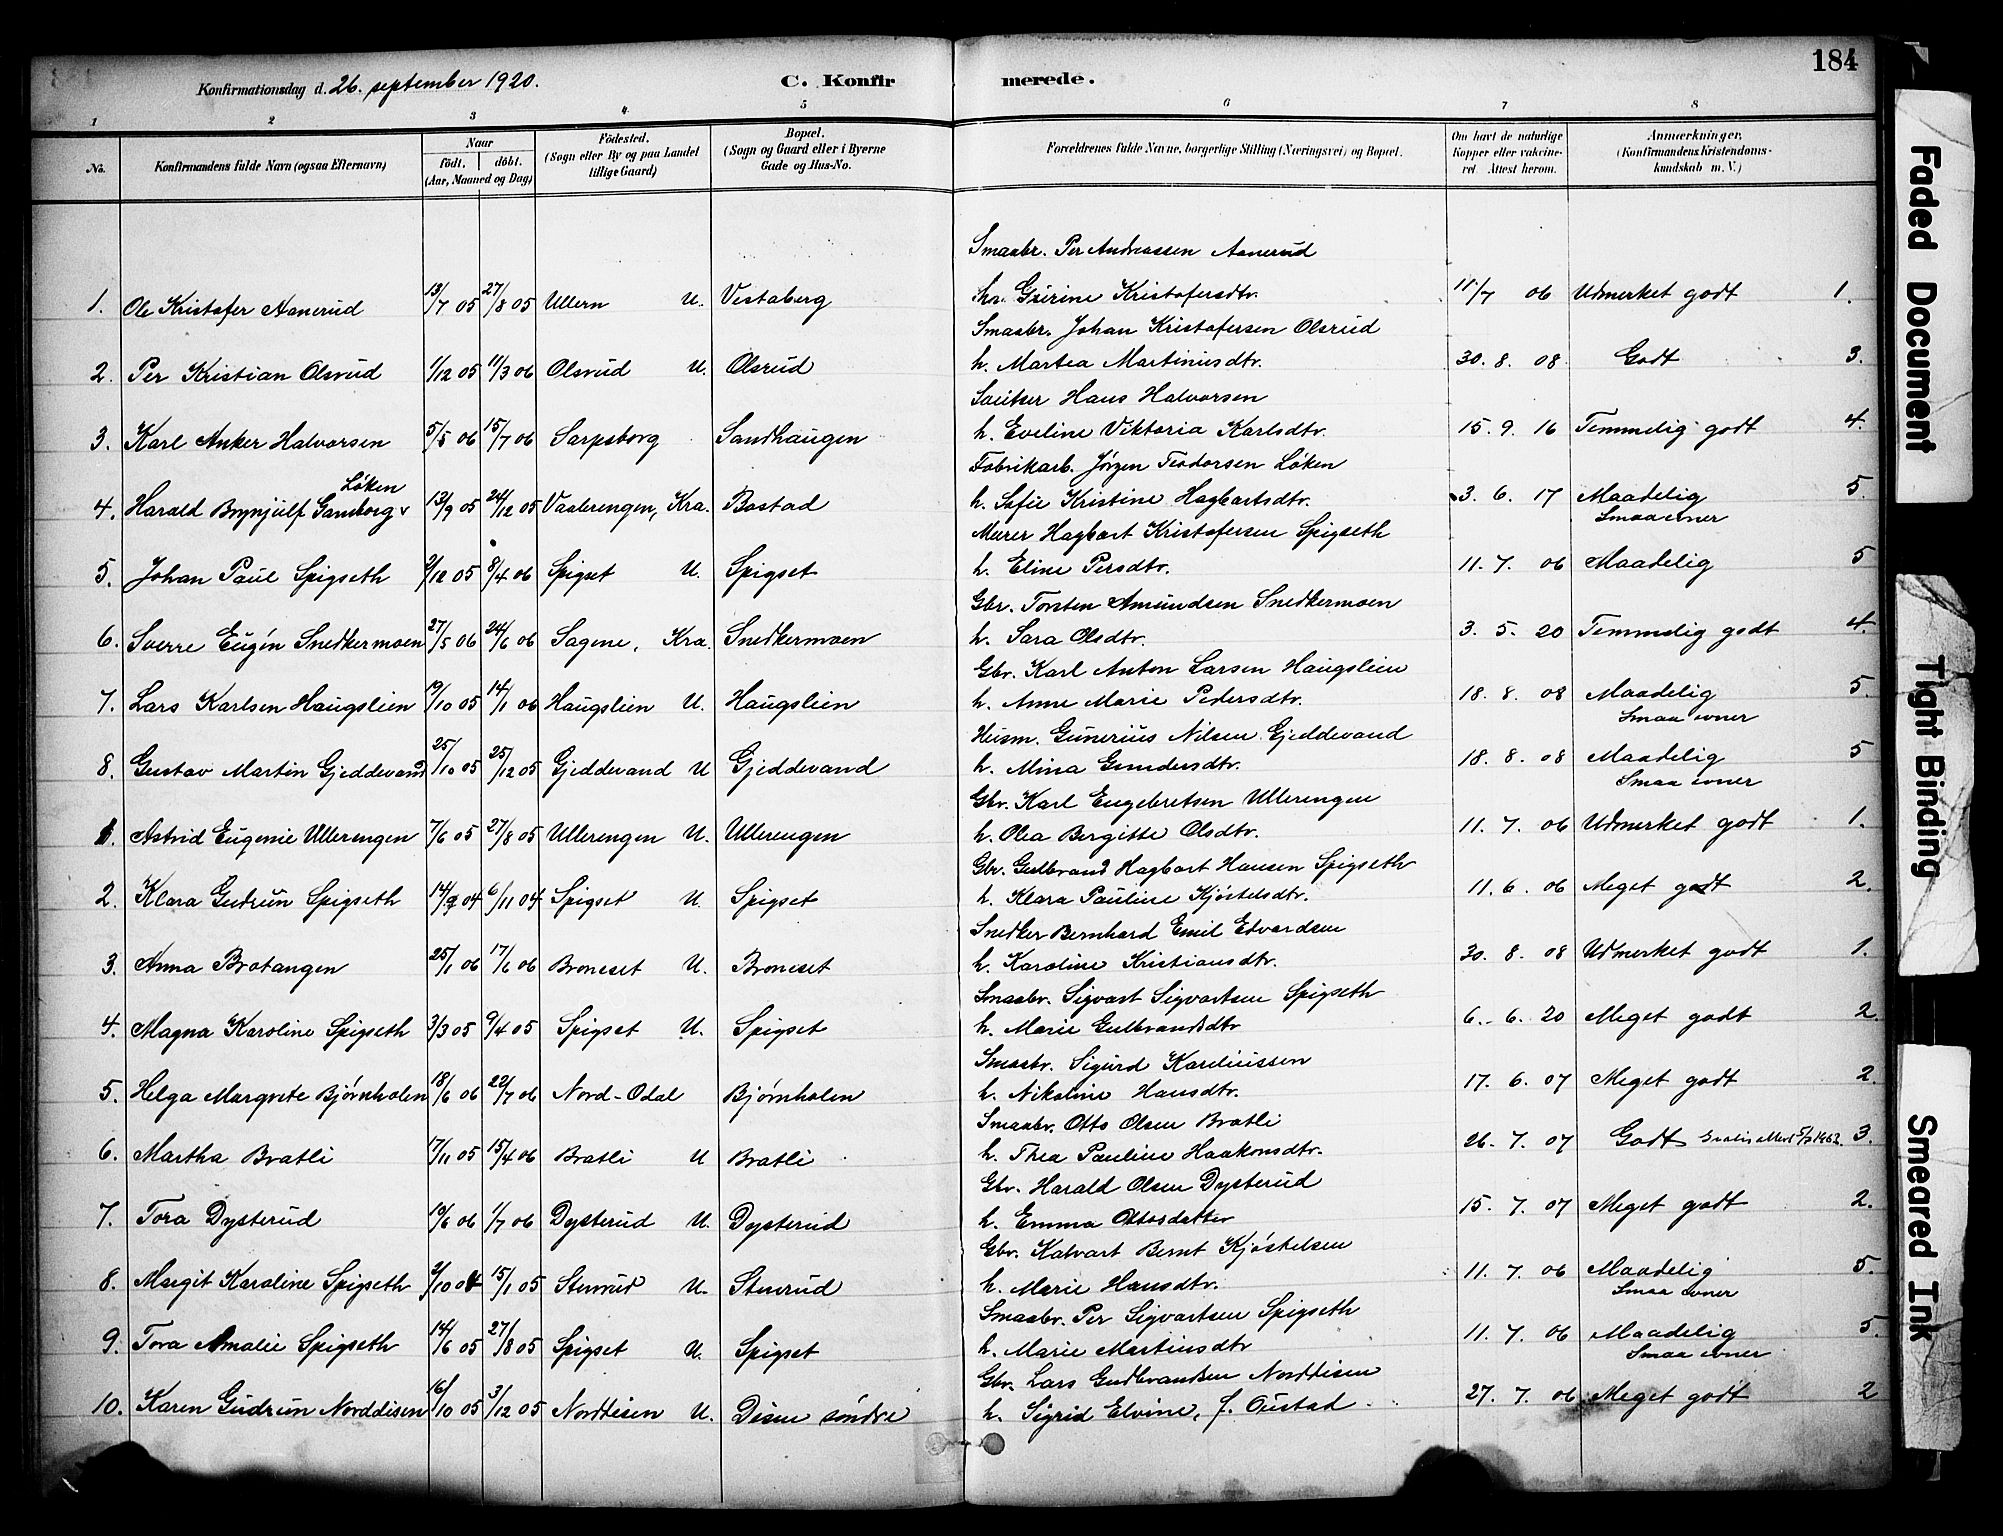 184
Konfirmationsdag d. 26. september 1920.
C. Konfirmerede.
1 2 3 4 5 6 7 8
No. Konfirmandens fulde Navn (ogsaa Efternavn) Naar födt. döbt. (Aar, Maaned og Dag) Födested. (Sogn eller By og paa Landet tillige Gaard) Bopæl. (Sogn og Gaard eller i Byerne Gade og Hus-No. Forældrenes fulde Navne, borgerlige Stilling (Næringsvei) og Bopæl. Om havt de naturlige Kopper eller vakcineret. Attest herom. Anmærkninger, (Konfirmandens Kristendomskundskab m. V.)
Smaabr. Per Andreassen Aanerud
1. Ole Kristofer Aanerud 13/7 05 27/8 05 Ullern U. Vestaberg h. Gurine Kristofersdtr. 11/7 06 Udmerket godt 1.
Smaabr. Johan Kristofersen Olsrud
2. Per Kristian Olsrud 1/12 05 11/3 06 Olsrud U. Olsrud h. Martea Martinusdtr. 30. 8. 08 Godt 3.
Sveitser Hans Halvorsen
3. Karl Anker Halvorsen 5/5 06 15/7 06 Sarpsborg Sandhaugen h. Eveline Viktoria Karlsdtr. 15. 9. 16 Temmelig godt 4.
Fabrikarb. Jörgen Teodorsen Löken
4. Harald Brynjulf Gamborg Löken 13/9 05 24/12 05 Vaalerengen, Kra. Bastad h. Sofie Kristine Hagbartsdtr. 3. 6. 17 Maadelig Smaa evner 5.
Murer Hagbart Kristofersen Spigseth
5. Johan Paul Spigseth 2/12 05 8/4 06 Spigset U. Spigset h. Eline Persdtr. 11. 7. 06 Maadelig 5
Gbr. Torsten Amundsen Snedkermoen
6. Sverre Eugén Snedkermoen 27/5 06 24/6 06 Sagene, Kra. Snedkermoen h. Sara Olsdtr. 3. 5. 20 Temmelig godt 4.
Gbr. Karl Anton Larsen Haugslien
7. Lars Karlsen Haugslien 19/10 05 14/1 06 Haugslien U. Haugslien h. Anne Marie Pedersdtr. 18. 8. 08 Maadelig Smaa evner 5.
Husm. Gunerius Nilsen Gjeddevand
8. Gustav Martin Gjeddevand 25/10 05 25/12 05 Gjeddevand U Gjeddevand h. Mina Gundersdtr. 18. 8. 08 Maadelig Smaa evner 5
Gbr. Karl Engebretsen Ullerengen
1. Astrid Eugenie Ullerengen 7/6 05 27/8 05 Ullerengen U. Ullerengen h. Olea Bergitte Olsdtr. 11. 7. 06 Udmerket godt 1.
Gbr. Gulbrand Hagbart Hansen Spigseth
2. Klara Gudrun Spigseth 14/9 04 6/11 04 Spigset U. Spigset h. Klara Pauline Kjöstelsdtr. 11. 6. 06 Meget godt 2.
Snedker Bernhard Emil Edvardsen
3. Anna Brotangen 25/1 06 17/6 06 Broneset U. Broneset h. Karoline Kristiansdtr. 30. 8. 08 Udmerket godt 1.
Smaabr. Sigvart Sigvartsen Spigseth
4. Magna Karoline Spigseth 3/3 05 9/4 05 Spigset U. Spigset h. Marie Gulbrandsdtr 6. 6. 20 Meget godt 2.
Smaabr. Sigurd Karelinissen
5. Helga Margrete Bjørnholen 18/6 06 22/7 06 Nord-Odal Bjørnholen h. Nikoline Hansdtr. 17. 6. 07 Meget godt 2.
Smaabr. Otto Olsen Bratli
6. Martha Bratli 17/11 05 15/4 06 Bratli U Bratli h. Thea Pauline Haakonsdtr. 26. 7. 07 Godt 1962. 3.
Gbr. Harald Olsen Dysterud
7. Tora Dysterud 10/6 06 1/7 06 Dysterud U. Dysterud h. Emma Ottosdatter 15. 7. 07 Meget godt 2.
Gbr. Halvart Bernt Kjöstelsen
8. Margit Karoline Spigseth 2/10 04 15/1 05 Stenrud U. Stenrud h. Marie Hansdtr. 11. 7. 06 Maadelig Smaa evner 5.
Smaabr. Per Sigvartsen Spigseth
9. Tora Amalie Spigseth 14/6 05 27/8 05 Spigset U. Spigset h. Marie Martinsdtr 11. 7. 06 Maadelig Smaa evner 5.
Gbr. Lars Gudbrandsen Norddisen
10. Karen Gudrun Norddisen 16/10 05 3/12 05 Norddisen U. Disen söndre h. Sigrid Elvine, f. Oustad 27. 7. 06 Meget godt 2
Faded Document
Tight Binding
Smeared Ink